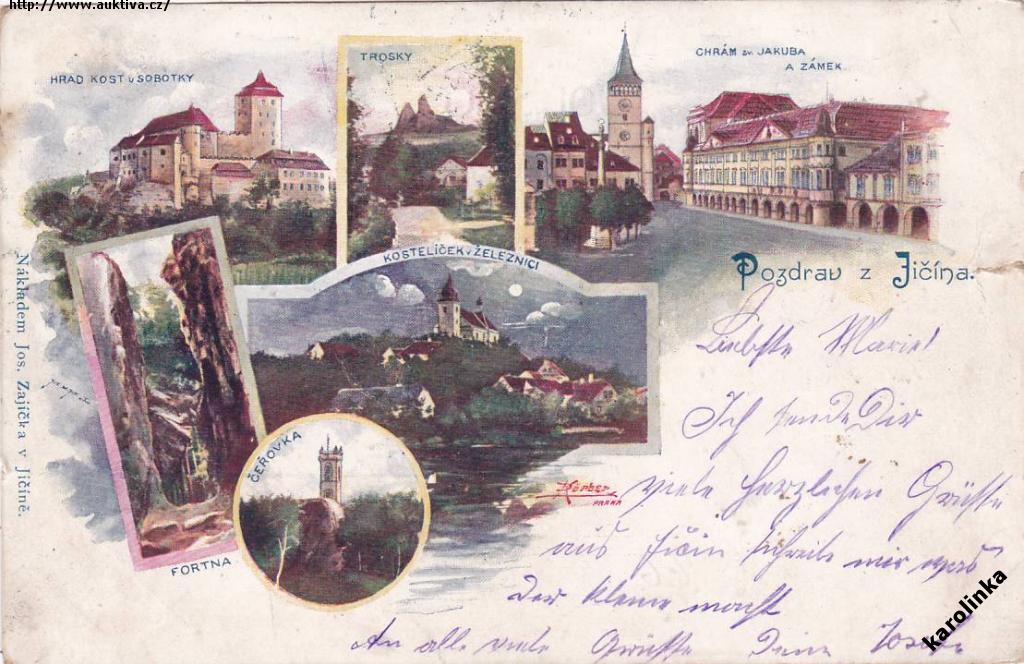 http://www.auktiva.cz/
HRAD KOST U SOBOTKY
TROSKY
CHRÁM SV. JAKUBA
A ZÁMEK
KOSTELÍČEK V ŽELEZNICI
Pozdrav z Jičína.
Nákladem Jos. Zajíčka v Jičíně.
FORTNA
ČEŘOVKA
Körber
PRAHA
Liebste Marie!
Ich sende Dir
viele herzlichen Grüsse
aus Jičin schreibe mir was
der kleine macht
An alle viele Grüsse Deine
karolinka